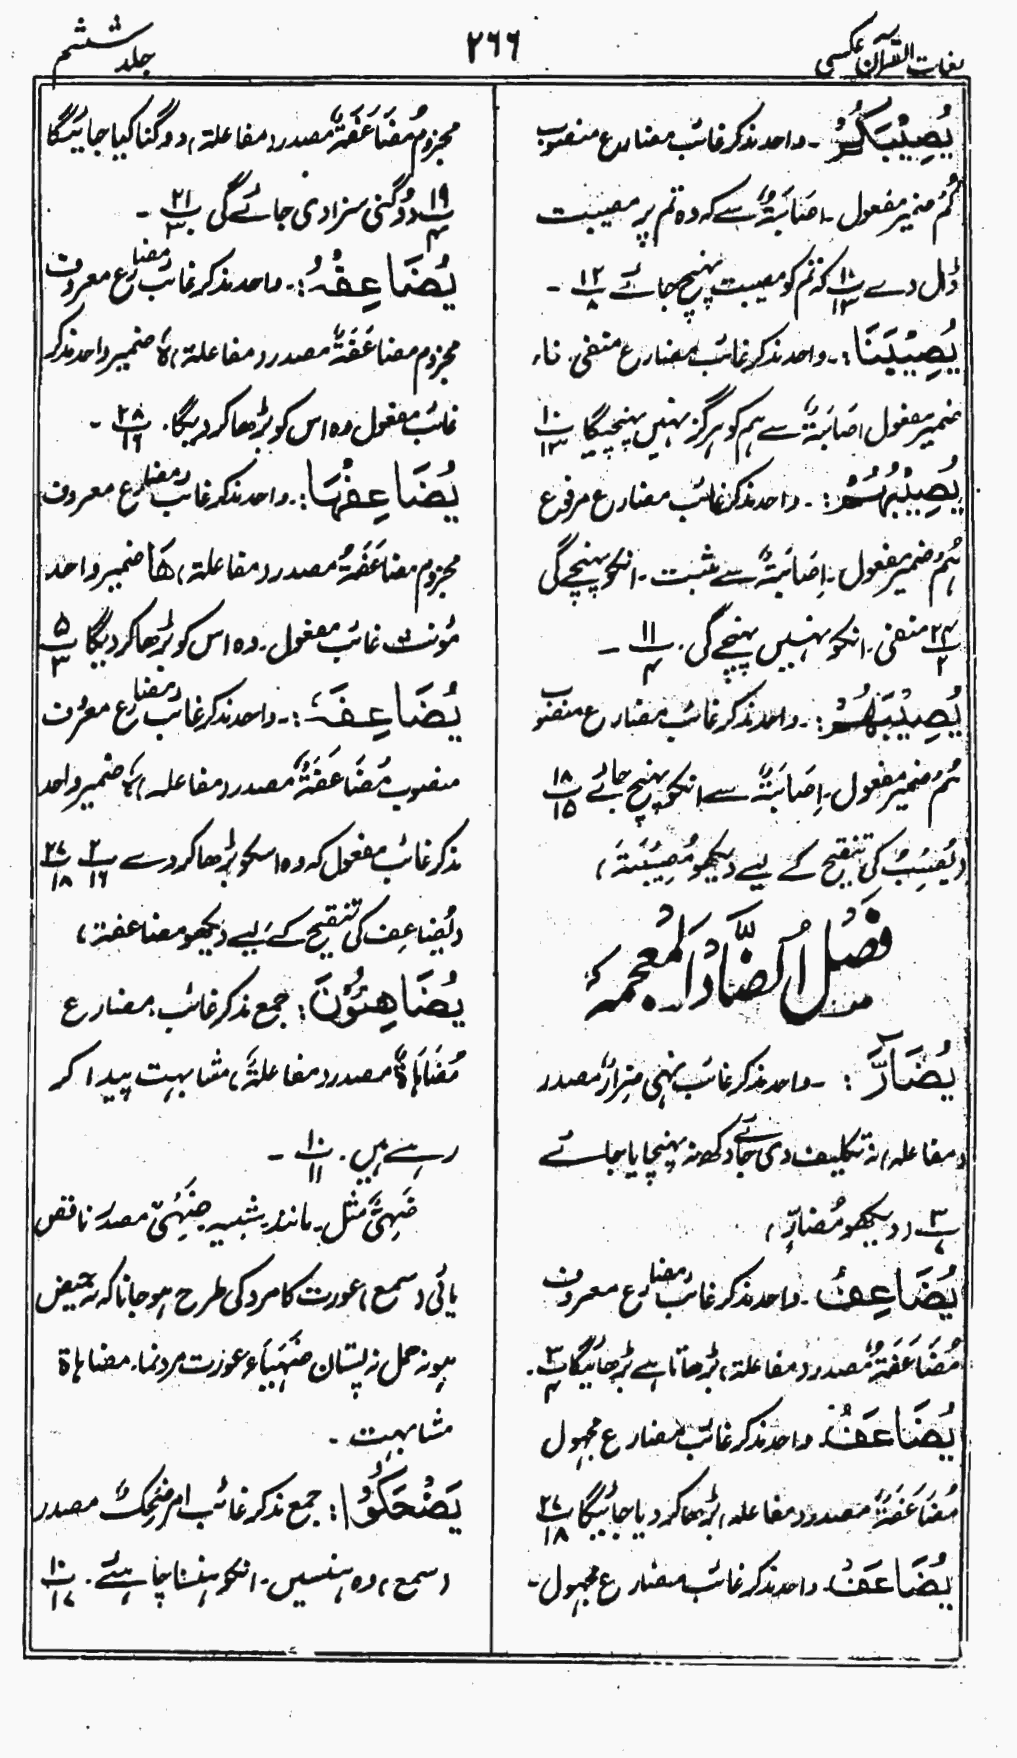 لغات القرآن عکسی
۲۶۶
جلد ششم
یُصِیْبَکُمْ ۔ واحد مذکر غائب مضارع منصوب
کُمْ ضمیر مفعول ۔ اصَابَۃٌ سے کہ وہ تم پر مصیبت
ڈال دے پ ۱۸/۱۳ کہ تم کو مصیبت پہنچ جائے پ ۱۲/۸ ۔
یُصِیْبَنَا :۔ واحد مذکر غائب مضارع منفی، نا،
ضمیر مفعول اصَابَۃٌ سے ہم کو ہرگز نہیں پہنچیگا پ ۱۰/۱۳
یُصِیْبُہُمْ :۔ واحد مذکر غائب مضارع مرفوع
ہُم ضمیر مفعول ۔ اِصَابَۃٌ سے مثبت ۔ انکو پہنچے گی
پ ۲۴/۲ منفی ۔ انکو نہیں پہنچے گی ۔ پ ۱۱/۴ ۔
یُصِیْبَہُمْ :۔ واحد مذکر غائب مضارع منصوب
ہُم ضمیر مفعول ۔ اِصَابَۃٌ سے انکو پہنچ جائے پ ۱۸/۱۵
(یُصِیْبُ کی تنقیح کے لیے دیکھو مُصِیْبَۃٌ)
فَصْلُ الضَّادِ الْمُعْجَمَۃِ
یُضَآرَّ : ۔ واحد مذکر غائب نہی ضِرَارٌ مصدر
(مفاعلہ) نہ تکلیف دی جائے دکھ نہ پہنچایا جائے
پ ۳/۷ (دیکھو مُضَارٍّ)
یُضَاعِفُ ۔ واحد مذکر غائب مضارع معروف
مُضَاعَفَۃٌ مصدر (مفاعلۃ) بڑھاتا ہے بڑھائیگا پ ۳/۴ ۔
یُضَاعَفُ ۔ واحد مذکر غائب مضارع مجہول
مُضَاعَفَۃٌ مصدر (مفاعلہ) بڑھا کر دیا جائیگا پ ۲۷/۱۸
یُضَاعَفْ ۔ واحد مذکر غائب مضارع مجہول ۔
مجزوم مُضَاعَفَۃٌ مصدر (مفاعلۃ) دوگنا کیا جائیگا
پ ۱۹/۴ دوگنی سزا دی جائے گی پ ۲۱/۳ ۔
یُضَاعِفْہُ :۔ واحد مذکر غائب مضارع معروف
مجزوم مضاعَفَۃٌ مصدر (مفاعلۃ) ہُ ضمیر واحد مذکر
غائب مفعول وہ اس کو بڑھا کر دیگا ۔ پ ۲۸/۱۶ ۔
یُضَاعِفْہَا :۔ واحد مذکر غائب مضارع معروف
مجزوم مضاعَفَۃٌ مصدر (مفاعلۃ) ھَا ضمیر واحد
مؤنث غائب مفعول ۔ وہ اس کو بڑھا کر دیگا پ ۵/۳
یُضَاعِفَہٗ :۔ واحد مذکر غائب مضارع معروف
منصوب مُضَاعَفَۃٌ مصدر (مفاعلہ) ہٗ ضمیر واحد
مذکر غائب مفعول کہ وہ اسکو بڑھا کر دے پ ۲/۱۶ پ ۲۷/۱۸
(یُضَاعِف کی تنقیح کے لیے دیکھو مضاعفۃ)
یُضَاہِئُوْنَ : جمع مذکر غائب مضارع
مُضَاہَاۃٌ مصدر (مفاعلۃ) مشابہت پیدا کر
رہے ہیں ۔ پ ۱۰/۱۱ ۔
ضَہِیٌّ مثل ۔ مانند، شبیہ ضَہْیٌ مصدر ناقص
یائی (سمع) عورت کا مرد کی طرح ہو جانا کہ نہ حیض
ہو نہ حمل نہ پستان ضَہْیَاءُ عورت مرد نما ۔ مضاہاۃ
مشابہت ۔
یَضْحَکُوْا : جمع مذکر غائب امر ضِحْکٌ مصدر
(سمع) وہ ہنسیں ۔ انکو ہنسنا چاہئے ۔ پ ۱۰/۱۷